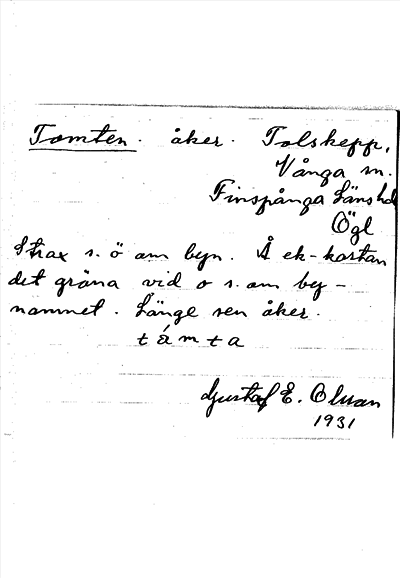 Tomten. åker. Tolskepp,
Vånga sn.
Finspånga Länshd
Ögl
Strax s. ö om byn. Å ek-kartan
det gröna vid o s. om by-
namnet. Länge sen åker.
támta
Gustaf E. Olsson
1931